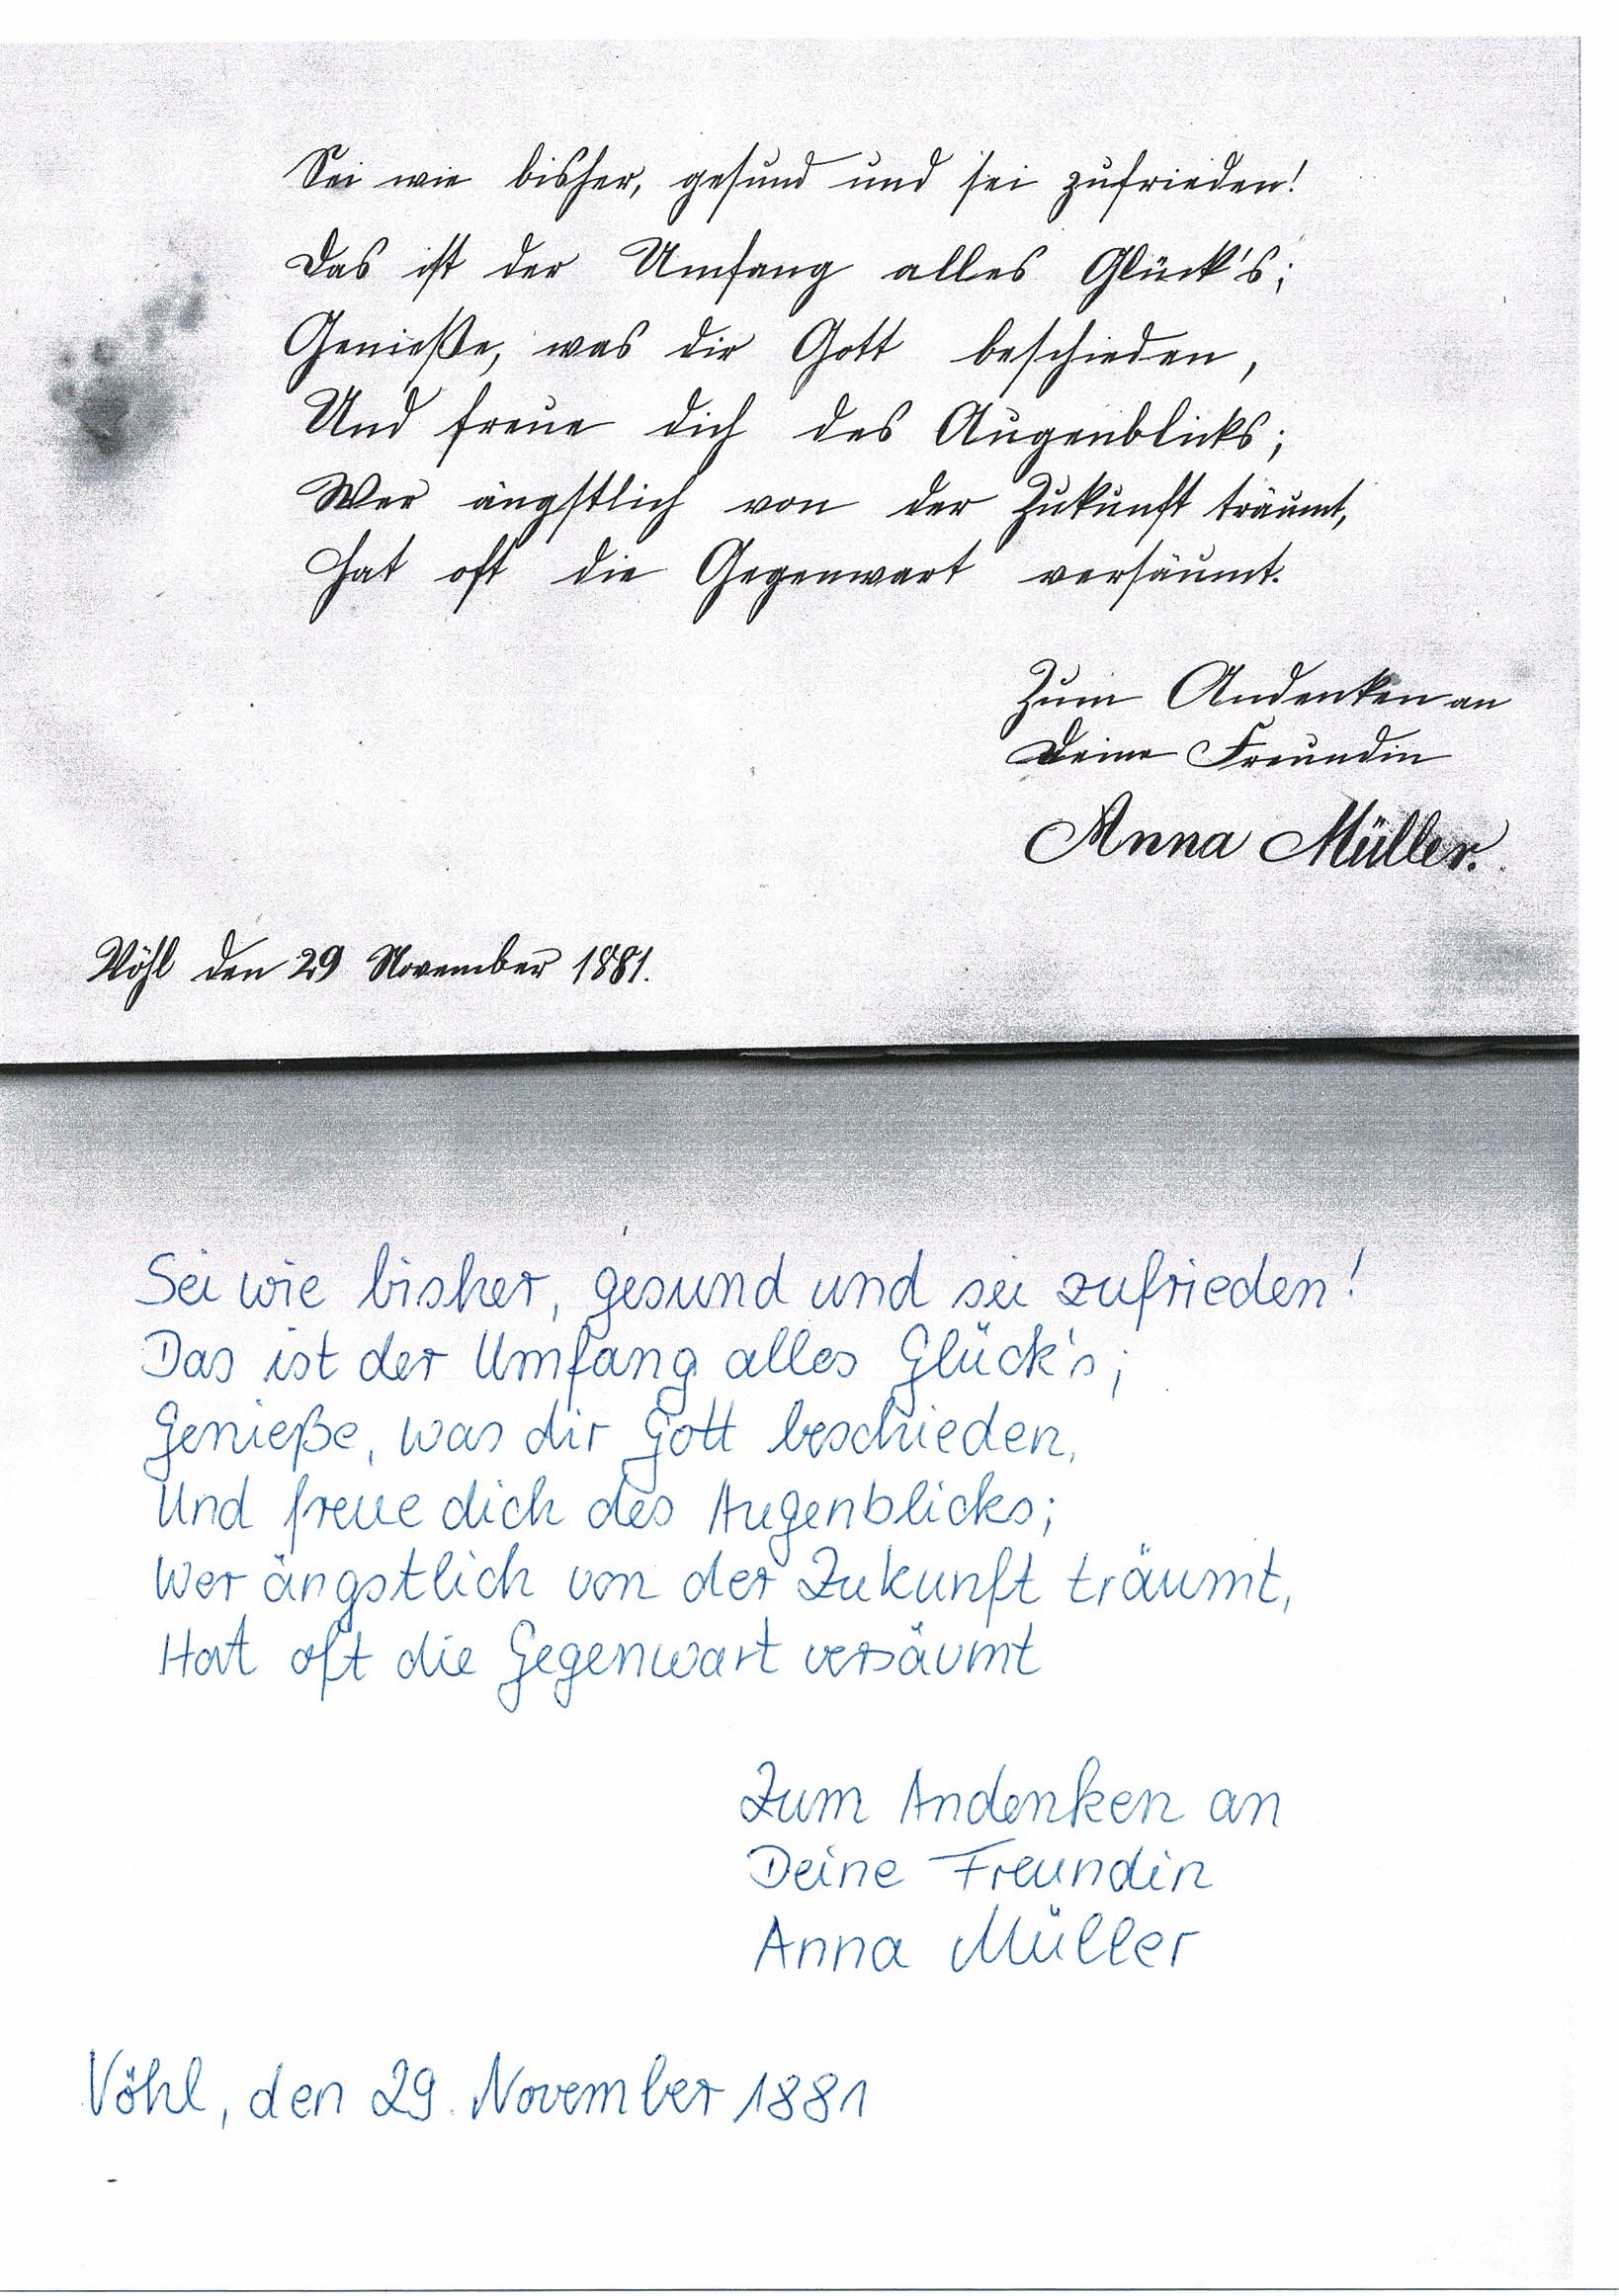 Sei wie bisher, gesund und sei zufrieden!
Das ist der Umfang alles Glück's;
Genieße, was dir Gott beschieden,
Und freue dich des Augenblicks;
Wer ängstlich von der Zukunft träumt,
Hat oft die Gegenwart versäumt.
Zum Andenken an
Deine Freundin
Anna Müller.
Vöhl den 29 November 1881.
Sei wie bisher, gesund und sei zufrieden!
Das ist der Umfang alles Glück's;
Genieße, was dir Gott beschieden,
Und freue dich des Augenblicks;
Wer ängstlich von der Zukunft träumt,
Hat oft die Gegenwart versäumt
Zum Andenken an
Deine Freundin
Anna Müller
Vöhl, den 29. November 1881